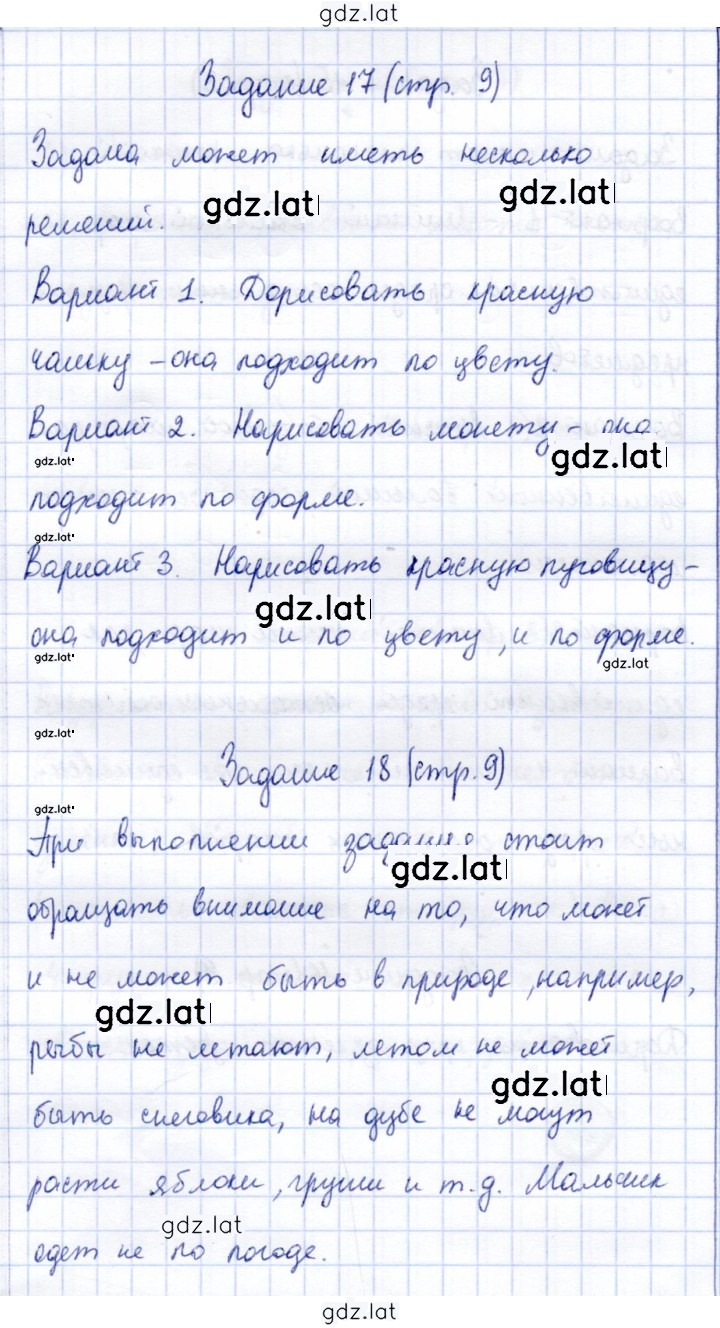 gdz.lat
Задание 17 (стр. 9)
Задача может иметь несколько
gdz.lat
gdz.lat
решений.
Вариант 1. Дорисовать красную
чашку – она подходит по цвету.
Вариант 2. Нарисовать монету – она
gdz.lat
gdz.lat
подходит по форме.
gdz.lat
Вариант 3. Нарисовать красную пуговицу –
gdz.lat
она подходит и по цвету, и по форме.
gdz.lat
gdz.lat
gdz.lat
Задание 18 (стр. 9)
gdz.lat
При выполнении задания стоит
gdz.lat
обращать внимание на то, что может
и не может быть в природе, например,
gdz.lat
рыбы не летают, летом не может
gdz.lat
быть снеговика, на дубе не могут
расти яблоки, груши и т.д. Мальчик
gdz.lat
одет не по погоде.
gdz.lat